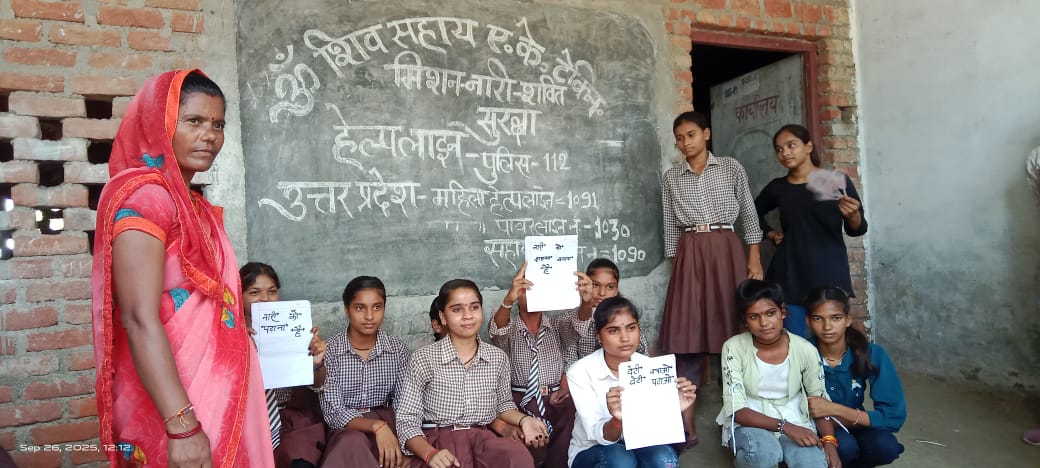 ॐ शिव सहाय ए. के. टैक्नि
मिशन-नारी-शक्ति
सुरक्षा
हेल्पलाइन-पुलिस-112
उत्तर प्रदेश-महिला हेल्पलाइन=1091
पावरलाइन नं-1030
न=1090
नारी को
"पढ़ाना" है
नारी को
बनाना
है
बेटी बचाओ
बेटी पढ़ाओ
कार्यालय
Sep 26, 2025, 12:12